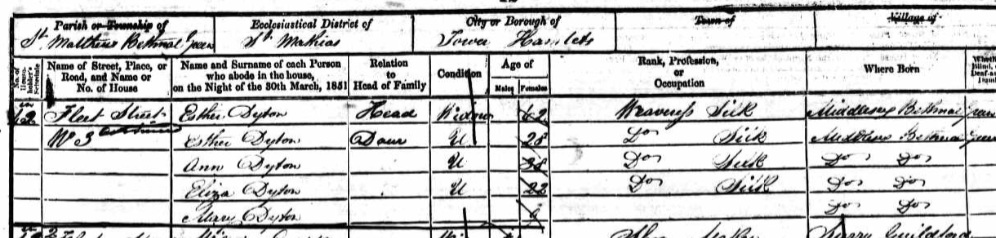 Parish or Township of Ecclesiastical District of City or Borough of Town of Village of
St. Matthew Bethnal Green St. Mathias Tower Hamlets
No. of House-holder's Schedule Name of Street, Place, or Road, and Name or No. of House Name and Surname of each Person who abode in the house, on the Night of the 30th March, 1851 Relation to Head of Family Condition Age of Males Females Rank, Profession, or Occupation Where Born
Fleet Street Esther Dyton Head Widow 62 Weaveress Silk Middlesex Bethnal Green
No 3 Esther Dyton Daur U 28 Do Silk Middlesex Bethnal Green
Ann Dyton U Do Silk Do Do
Eliza Dyton U 22 Do Silk Do Do
Mary Dyton Do Do
Surry Guildford